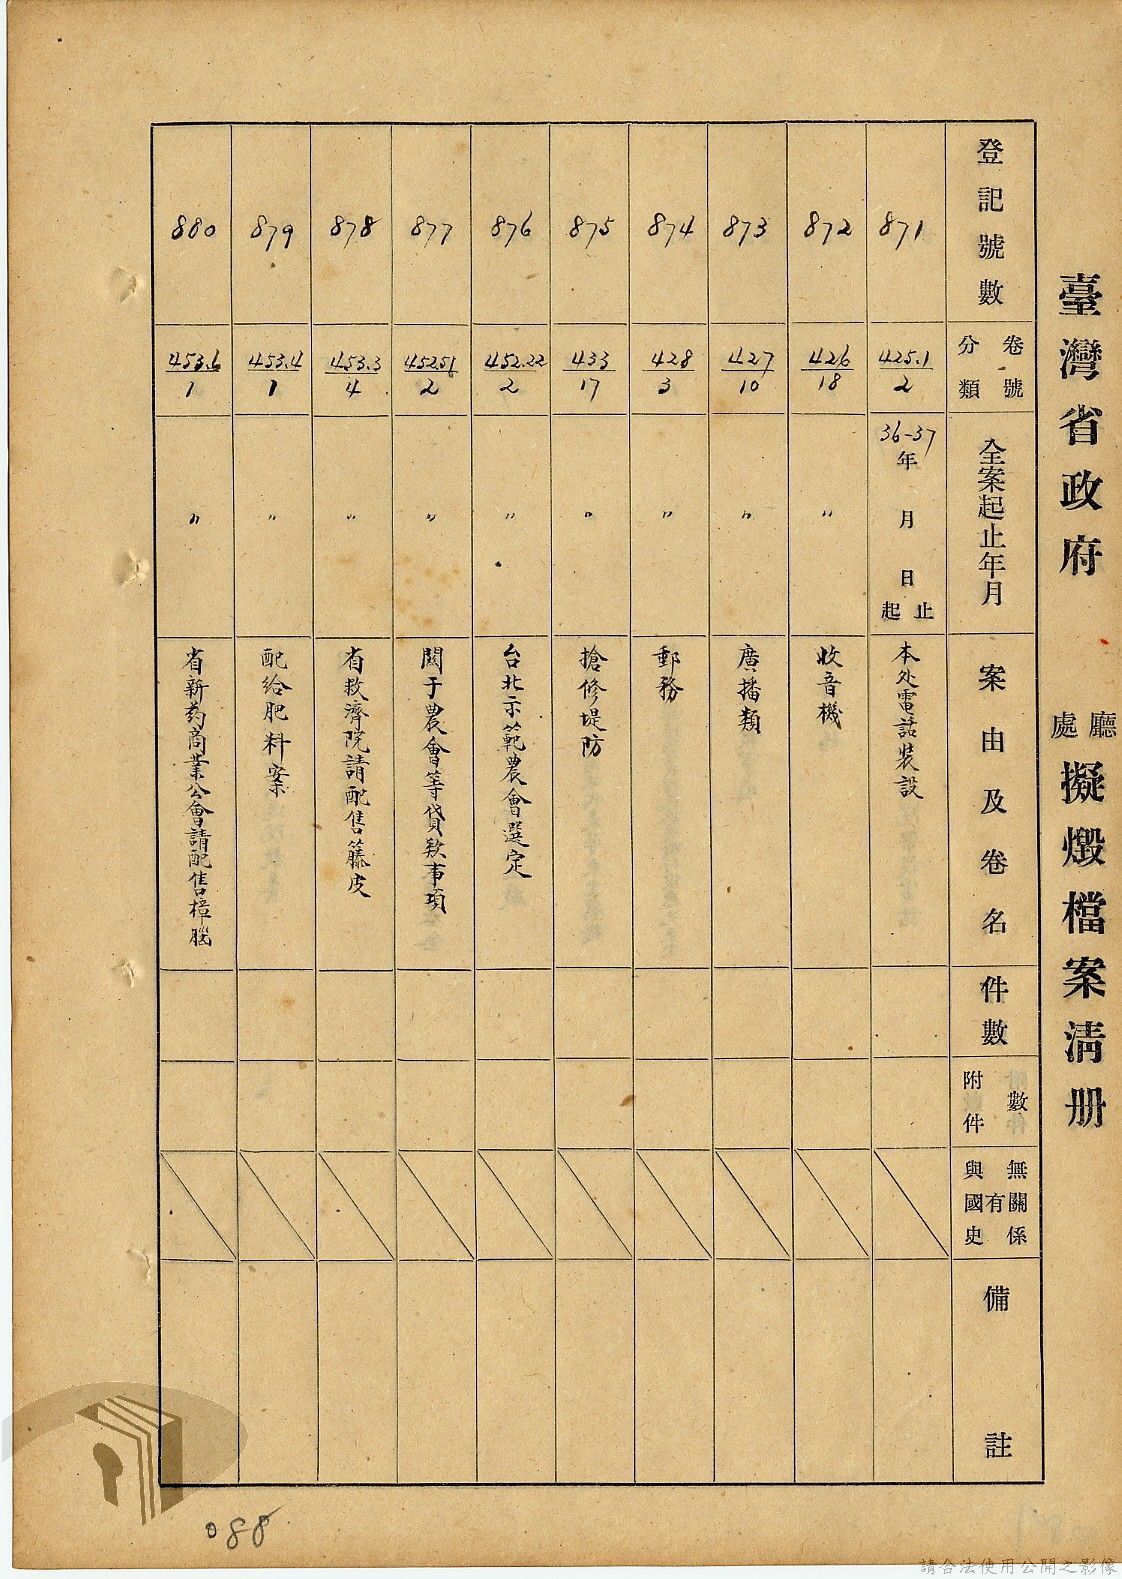 臺灣省政府 廳處 擬燬檔案清册
登記號數
卷號
分類
全案起止年月
案由及卷名
件數
附件數
與國史有無關係
備註
871
425.1
2
36-37
年 月 日
起止
本处電話裝設
872
426
18
〃
收音機
873
427
10
〃
廣播類
874
428
3
〃
郵務
875
433
17
〃
搶修堤防
876
452.22
2
〃
台北示範農會選定
877
452.51
2
〃
関于農會等貸款事項
878
453.3
4
〃
省救濟院請配售籐皮
879
453.4
1
〃
配給肥料案
880
453.6
1
〃
省新药商業公會請配售樟腦
088
請合法使用公開之影像